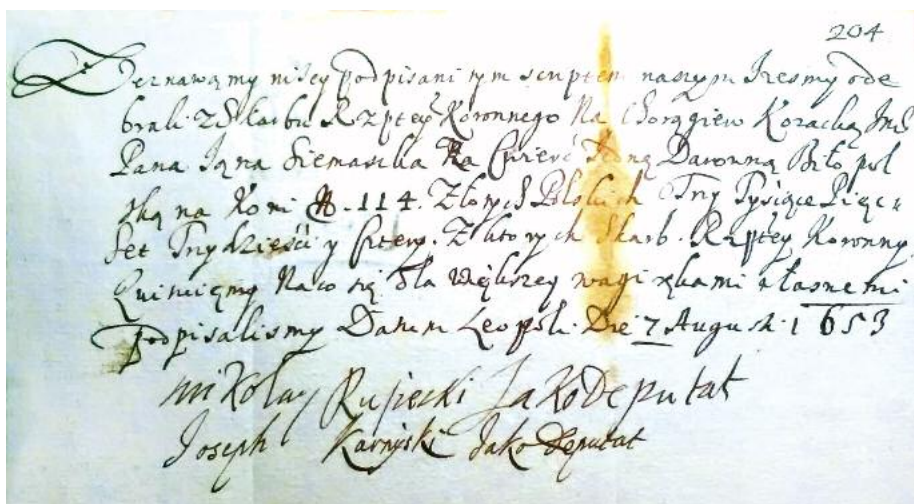 204
Zeznawamy niżey podpisani tym scriptem naszym Iżesmy ode
brali z Skarbu Rzptey Koronnego Na Chorągiew Kozacką Jmć
Pana Jana Siemaszka Za Cwierć Jedną Darowną Biłopol
ską na Koni No. 114. Złotych Polskich Trzy Tysiące Pięc
set Trzydzieści y Cztery. Z ktorych Skarb. Rzptey Koronny
Quituięmy Na co się dla większey wagi rękami własnemi
podpisalismy Datum Leopoli. Die 7 Augusti. 1653
Mikołay Rupiecki Jako Deputat
Joseph Karnyski Jako Deputat